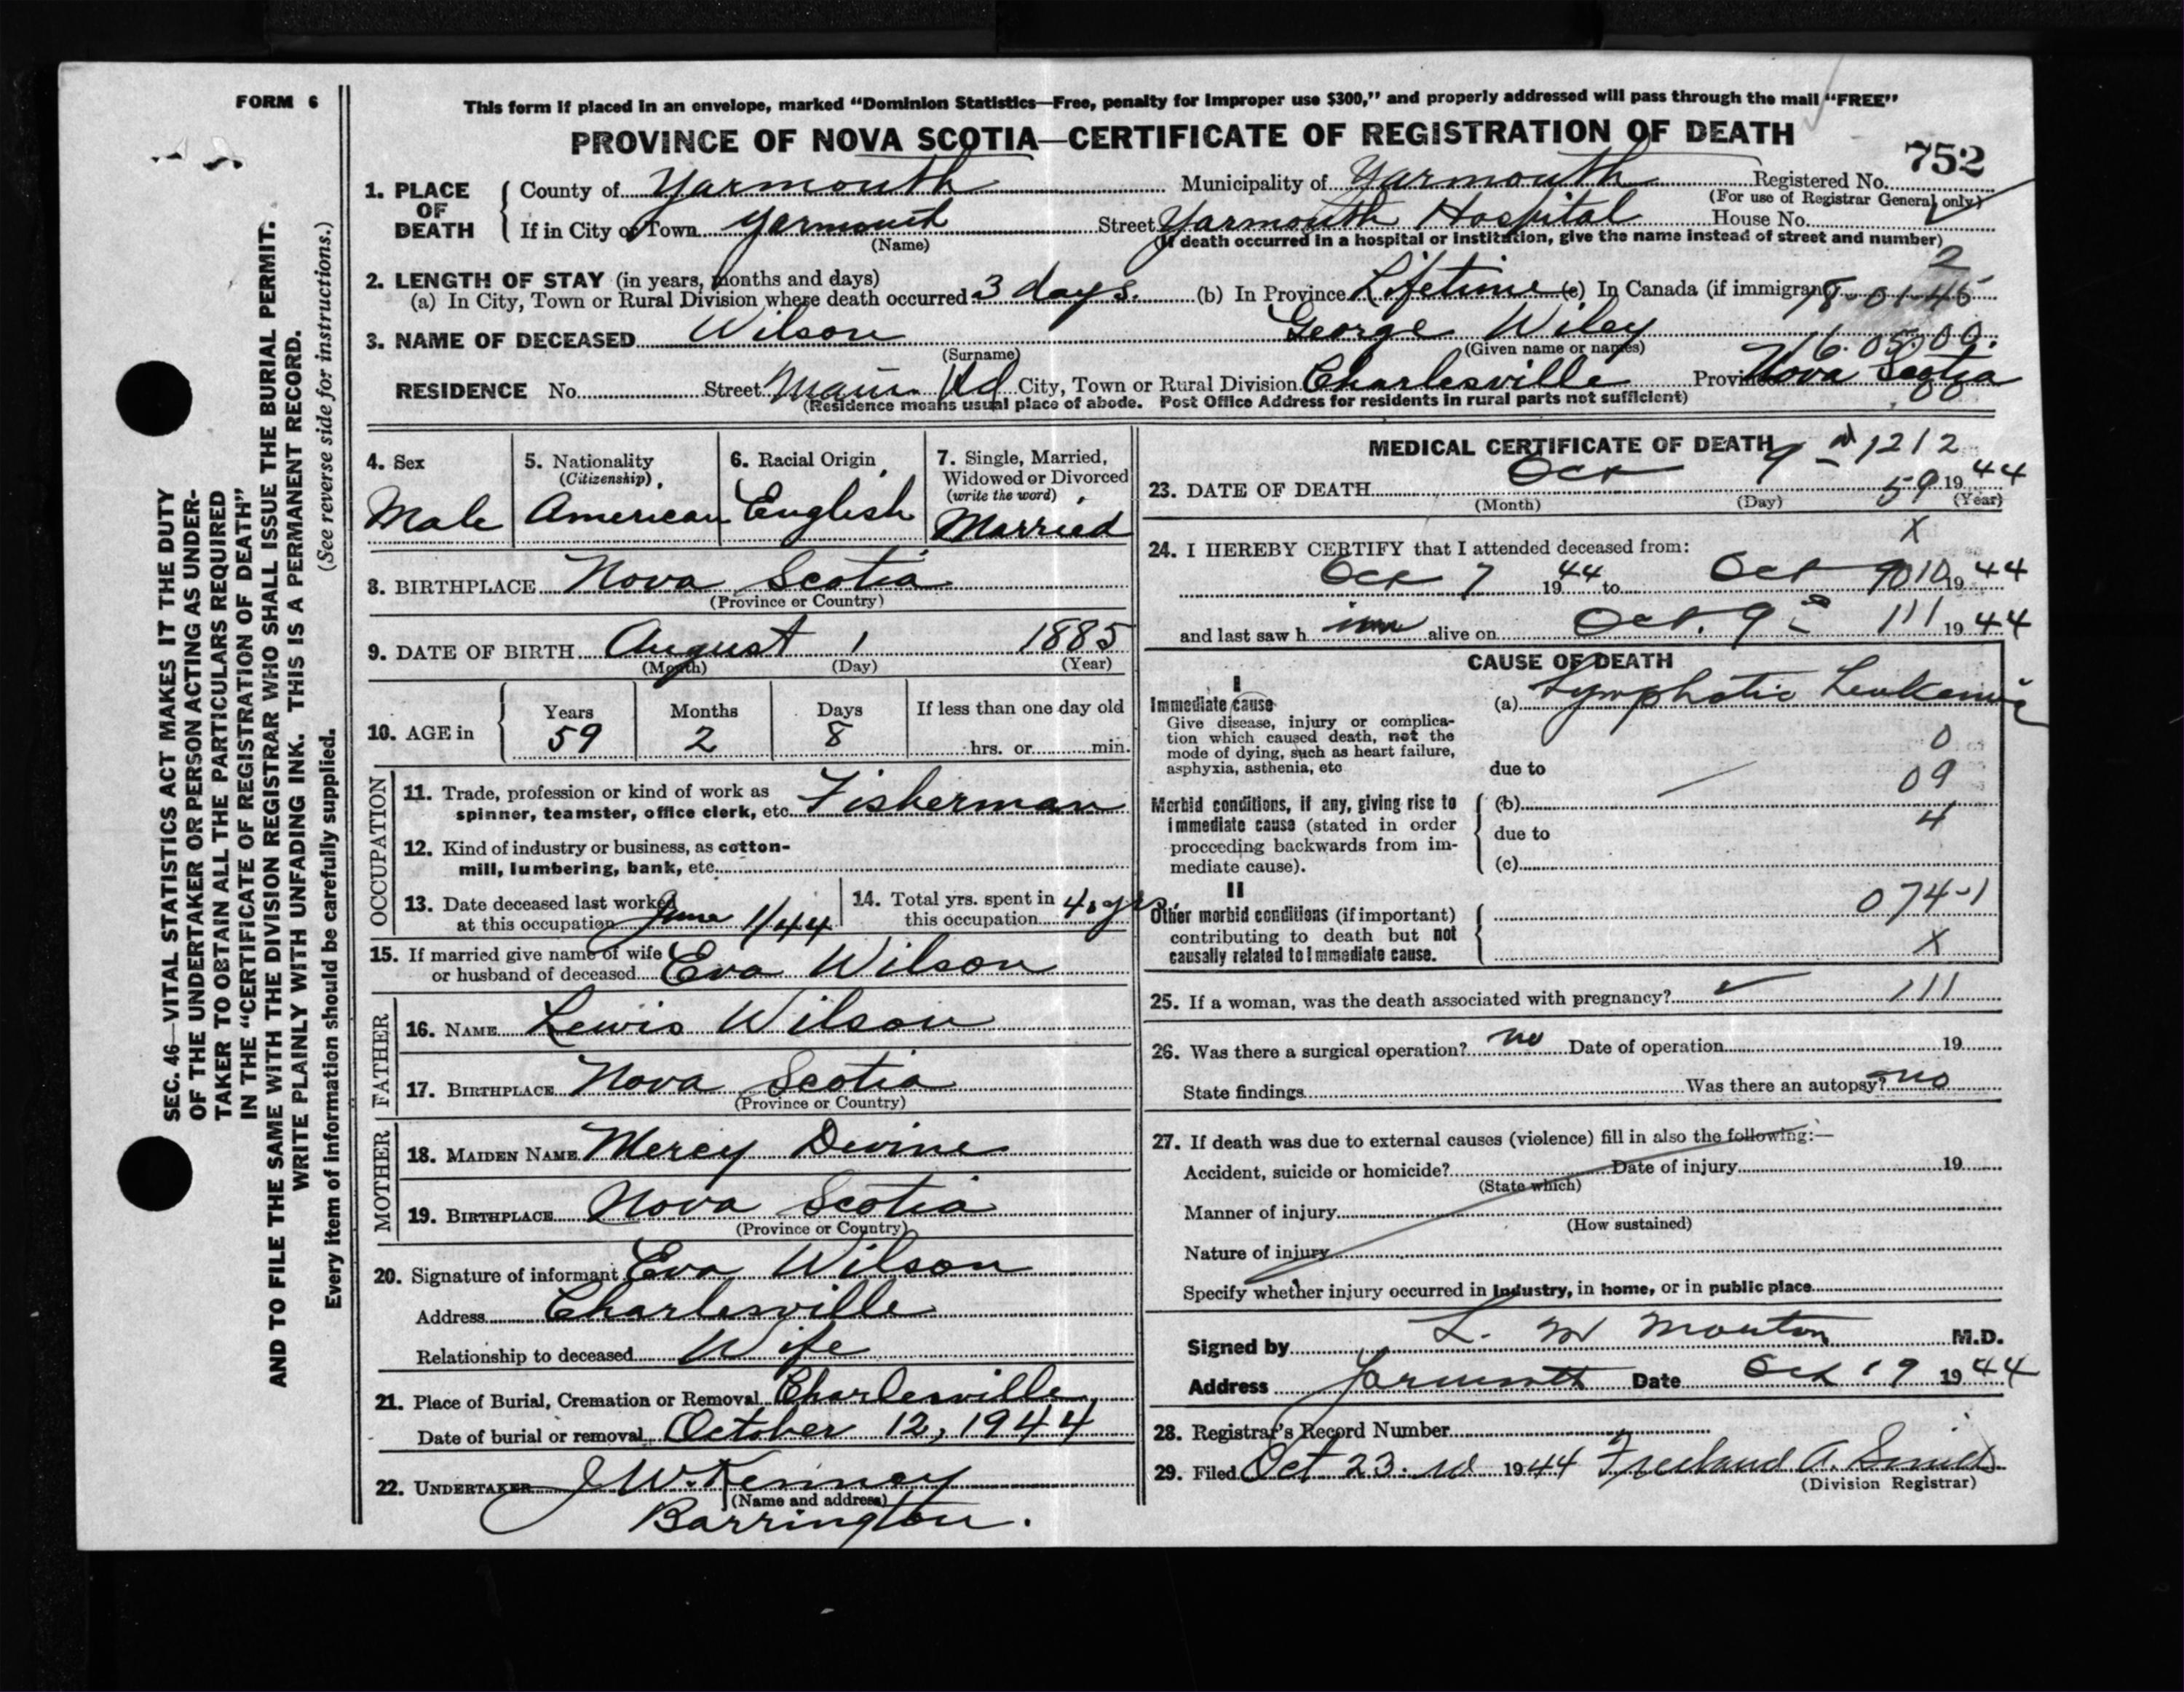 FORM 6
This form if placed in an envelope, marked “Dominion Statistics—Free, penalty for improper use $300,” and properly addressed will pass through the mail “FREE”
PROVINCE OF NOVA SCOTIA—CERTIFICATE OF REGISTRATION OF DEATH
752
1. PLACE OF DEATH County of Yarmouth Municipality of Yarmouth Registered No.
(For use of Registrar General only)
If in City or Town Yarmouth Street Yarmouth Hospital House No.
(Name) (If death occurred in a hospital or institution, give the name instead of street and number)
2. LENGTH OF STAY (in years, months and days) 2
(a) In City, Town or Rural Division where death occurred 3 days. (b) In Province Lifetime (c) In Canada (if immigrant)
3. NAME OF DECEASED Wilson George Wiley
(Surname) (Given name or names)
RESIDENCE No. Street Main Rd City, Town or Rural Division Charlesville Province Nova Scotia
(Residence means usual place of abode. Post Office Address for residents in rural parts not sufficient)
00
SEC. 46—VITAL STATISTICS ACT MAKES IT THE DUTY
OF THE UNDERTAKER OR PERSON ACTING AS UNDER-
TAKER TO OBTAIN ALL THE PARTICULARS REQUIRED
IN THE “CERTIFICATE OF REGISTRATION OF DEATH”
AND TO FILE THE SAME WITH THE DIVISION REGISTRAR WHO SHALL ISSUE THE BURIAL PERMIT.
WRITE PLAINLY WITH UNFADING INK. THIS IS A PERMANENT RECORD.
(See reverse side for instructions.)
Every item of information should be carefully supplied.
4. Sex
Male
5. Nationality
(Citizenship)
American
6. Racial Origin
English
7. Single, Married,
Widowed or Divorced
(write the word)
Married
8. BIRTHPLACE Nova Scotia
(Province or Country)
9. DATE OF BIRTH August 1 1885
(Month) (Day) (Year)
10. AGE in Years Months Days If less than one day old
59 2 8 hrs. or min.
OCCUPATION
11. Trade, profession or kind of work as
spinner, teamster, office clerk, etc. Fisherman
12. Kind of industry or business, as cotton-
mill, lumbering, bank, etc.
13. Date deceased last worked
at this occupation June 1/44
14. Total yrs. spent in
this occupation 40 yrs.
15. If married give name of wife
or husband of deceased Eva Wilson
FATHER
16. NAME Lewis Wilson
17. BIRTHPLACE Nova Scotia
(Province or Country)
MOTHER
18. MAIDEN NAME Mercy Devine
19. BIRTHPLACE Nova Scotia
(Province or Country)
20. Signature of informant Eva Wilson
Address Charlesville
Relationship to deceased Wife
21. Place of Burial, Cremation or Removal Charlesville
Date of burial or removal October 12, 1944
22. UNDERTAKER J W. Kenney
(Name and address)
Barrington.
MEDICAL CERTIFICATE OF DEATH
1212
23. DATE OF DEATH Oct 9 59 1944
(Month) (Day) (Year)
X
24. I HEREBY CERTIFY that I attended deceased from:
Oct 7 1944 to Oct 9 1944
and last saw him alive on Oct. 9 111 1944
CAUSE OF DEATH
I
Immediate cause
Give disease, injury or complica-
tion which caused death, not the
mode of dying, such as heart failure,
asphyxia, asthenia, etc
(a) Lymphatic Leukemia
0
due to
09
Morbid conditions, if any, giving rise to
immediate cause (stated in order
proceeding backwards from im-
mediate cause).
(b)
4
due to
(c)
II
Other morbid conditions (if important)
contributing to death but not
causally related to immediate cause.
074-1
X
25. If a woman, was the death associated with pregnancy? 111
26. Was there a surgical operation? no Date of operation 19
State findings Was there an autopsy? no
27. If death was due to external causes (violence) fill in also the following:—
Accident, suicide or homicide? Date of injury 19
(State which)
Manner of injury
(How sustained)
Nature of injury
Specify whether injury occurred in industry, in home, or in public place
Signed by L. M Morton M.D.
Address Yarmouth Date Oct 19 1944
28. Registrar's Record Number
29. Filed Oct 23. 1944 Freeland A. Smith
(Division Registrar)